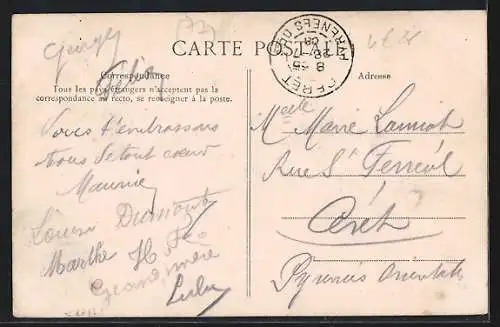 CARTE POSTALE
Correspondance
Tous les pays étrangers n'acceptent pas la
correspondance au recto, se renseigner à la poste.
Adresse
CERET
PYRÉNÉES OR
8 35
28 -7
09
Nous t'embrassons
tous de tout cœur
Maurice
Louise Dumont
Marthe H
Grand mère
Lulu
Melle Marie
Rue St Ferréol
Céret
Pyrénées Orientales